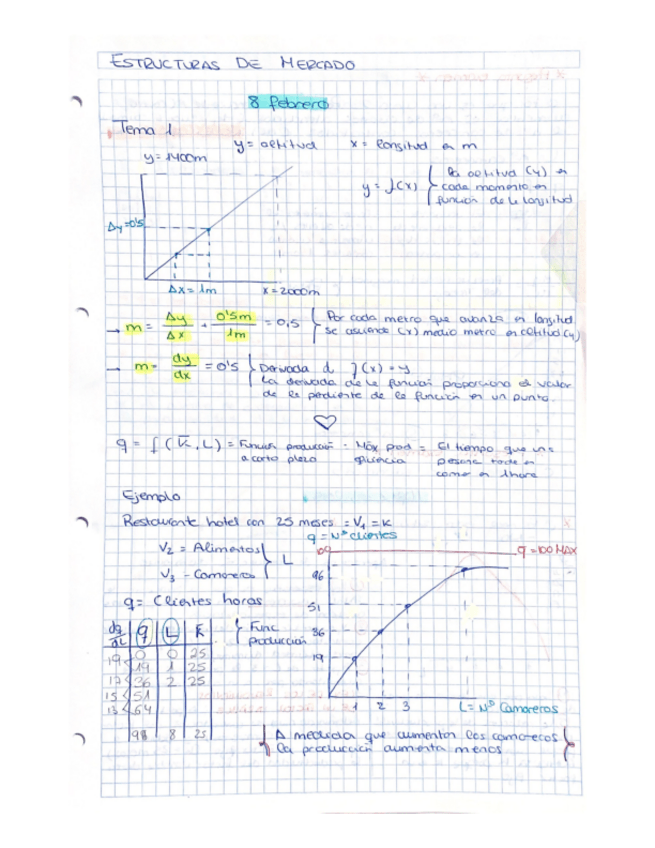 ESTRUCTURAS DE MERCADO
8 febrero
Tema 1
y = altitud x = longitud en m
y = 1400m
y = f(x) { la altitud (y) en
cada momento en
función de la longitud
Δy = 0'5
Δx = 1m x = 2000m
→ m = Δy/Δx 0'5m/1m = 0,5 { Por cada metro que avanza en longitud
se asciende (x) medio metro en altitud (y)
→ m = dy/dx = 0'5 } Derivada d f(x) = y
La derivada de la función proporciona el valor
de la pendiente de la función en un punto.
q = f(K̅, L) = Función producción = Máx prod = El tiempo que una
a corto plazo eficiencia persona tarde en
comer en 1 hora
Ejemplo
Restaurante hotel con 25 meses = V₁ = K
q = Nº clientes
V₂ = Alimentos } L
V₃ - Camareros
100 q = 100 MAX
96
q = Clientes horas
51
dq/dL | q | L | K̅ { Func
Producción
36
0 0 25
19 < 19 1 25
19
17 < 36 2 25
15 < 51
13 < 64
1 2 3 L = Nº Camareros
98 8 25
{ A medida que aumentan los camareros }
la producción aumenta menos